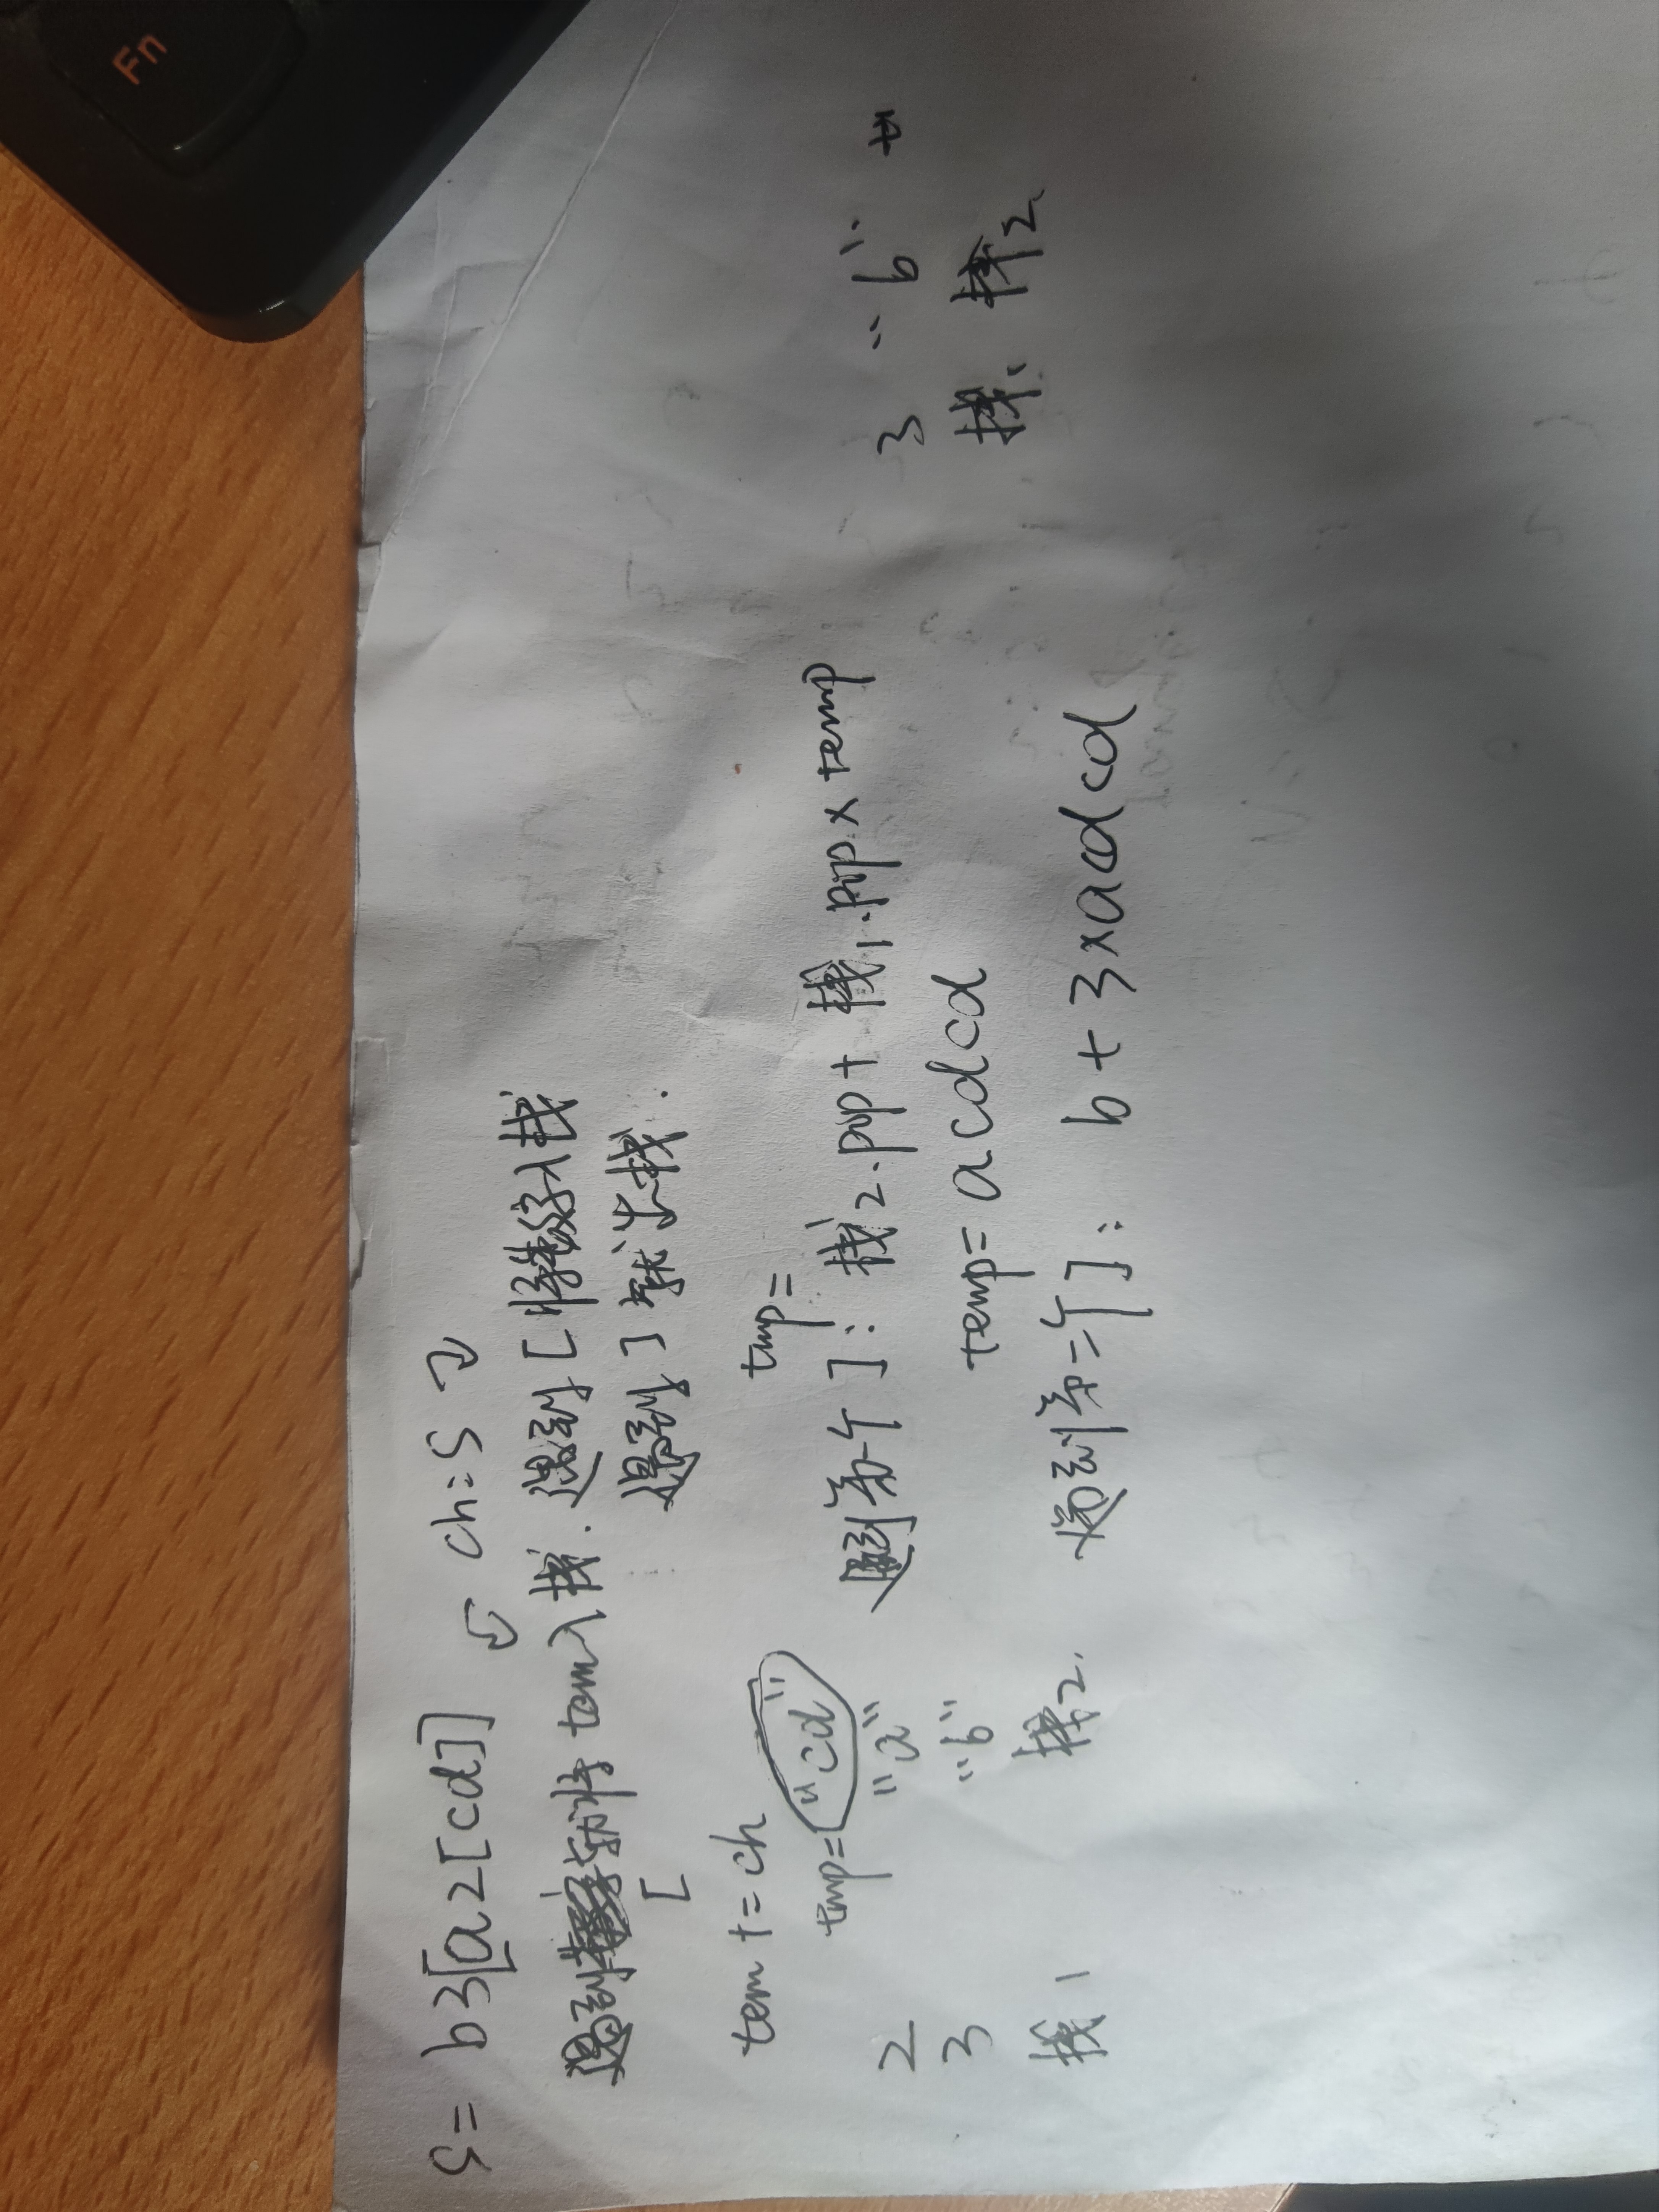 Fn
S= b3[a2[cd]] ch:S
遇到就将tem入栈. 遇到[将数字入栈
[ 遇到]就出栈.
tem += ch
tmp= "cd" tmp=
2 "a" 遇到第一个]: 栈2.pop + 栈1.pop × temp 3 "b"
3 "b" temp= acdcd 栈1 栈2
栈1 栈2. 遇到第二个]: b + 3×acdcd